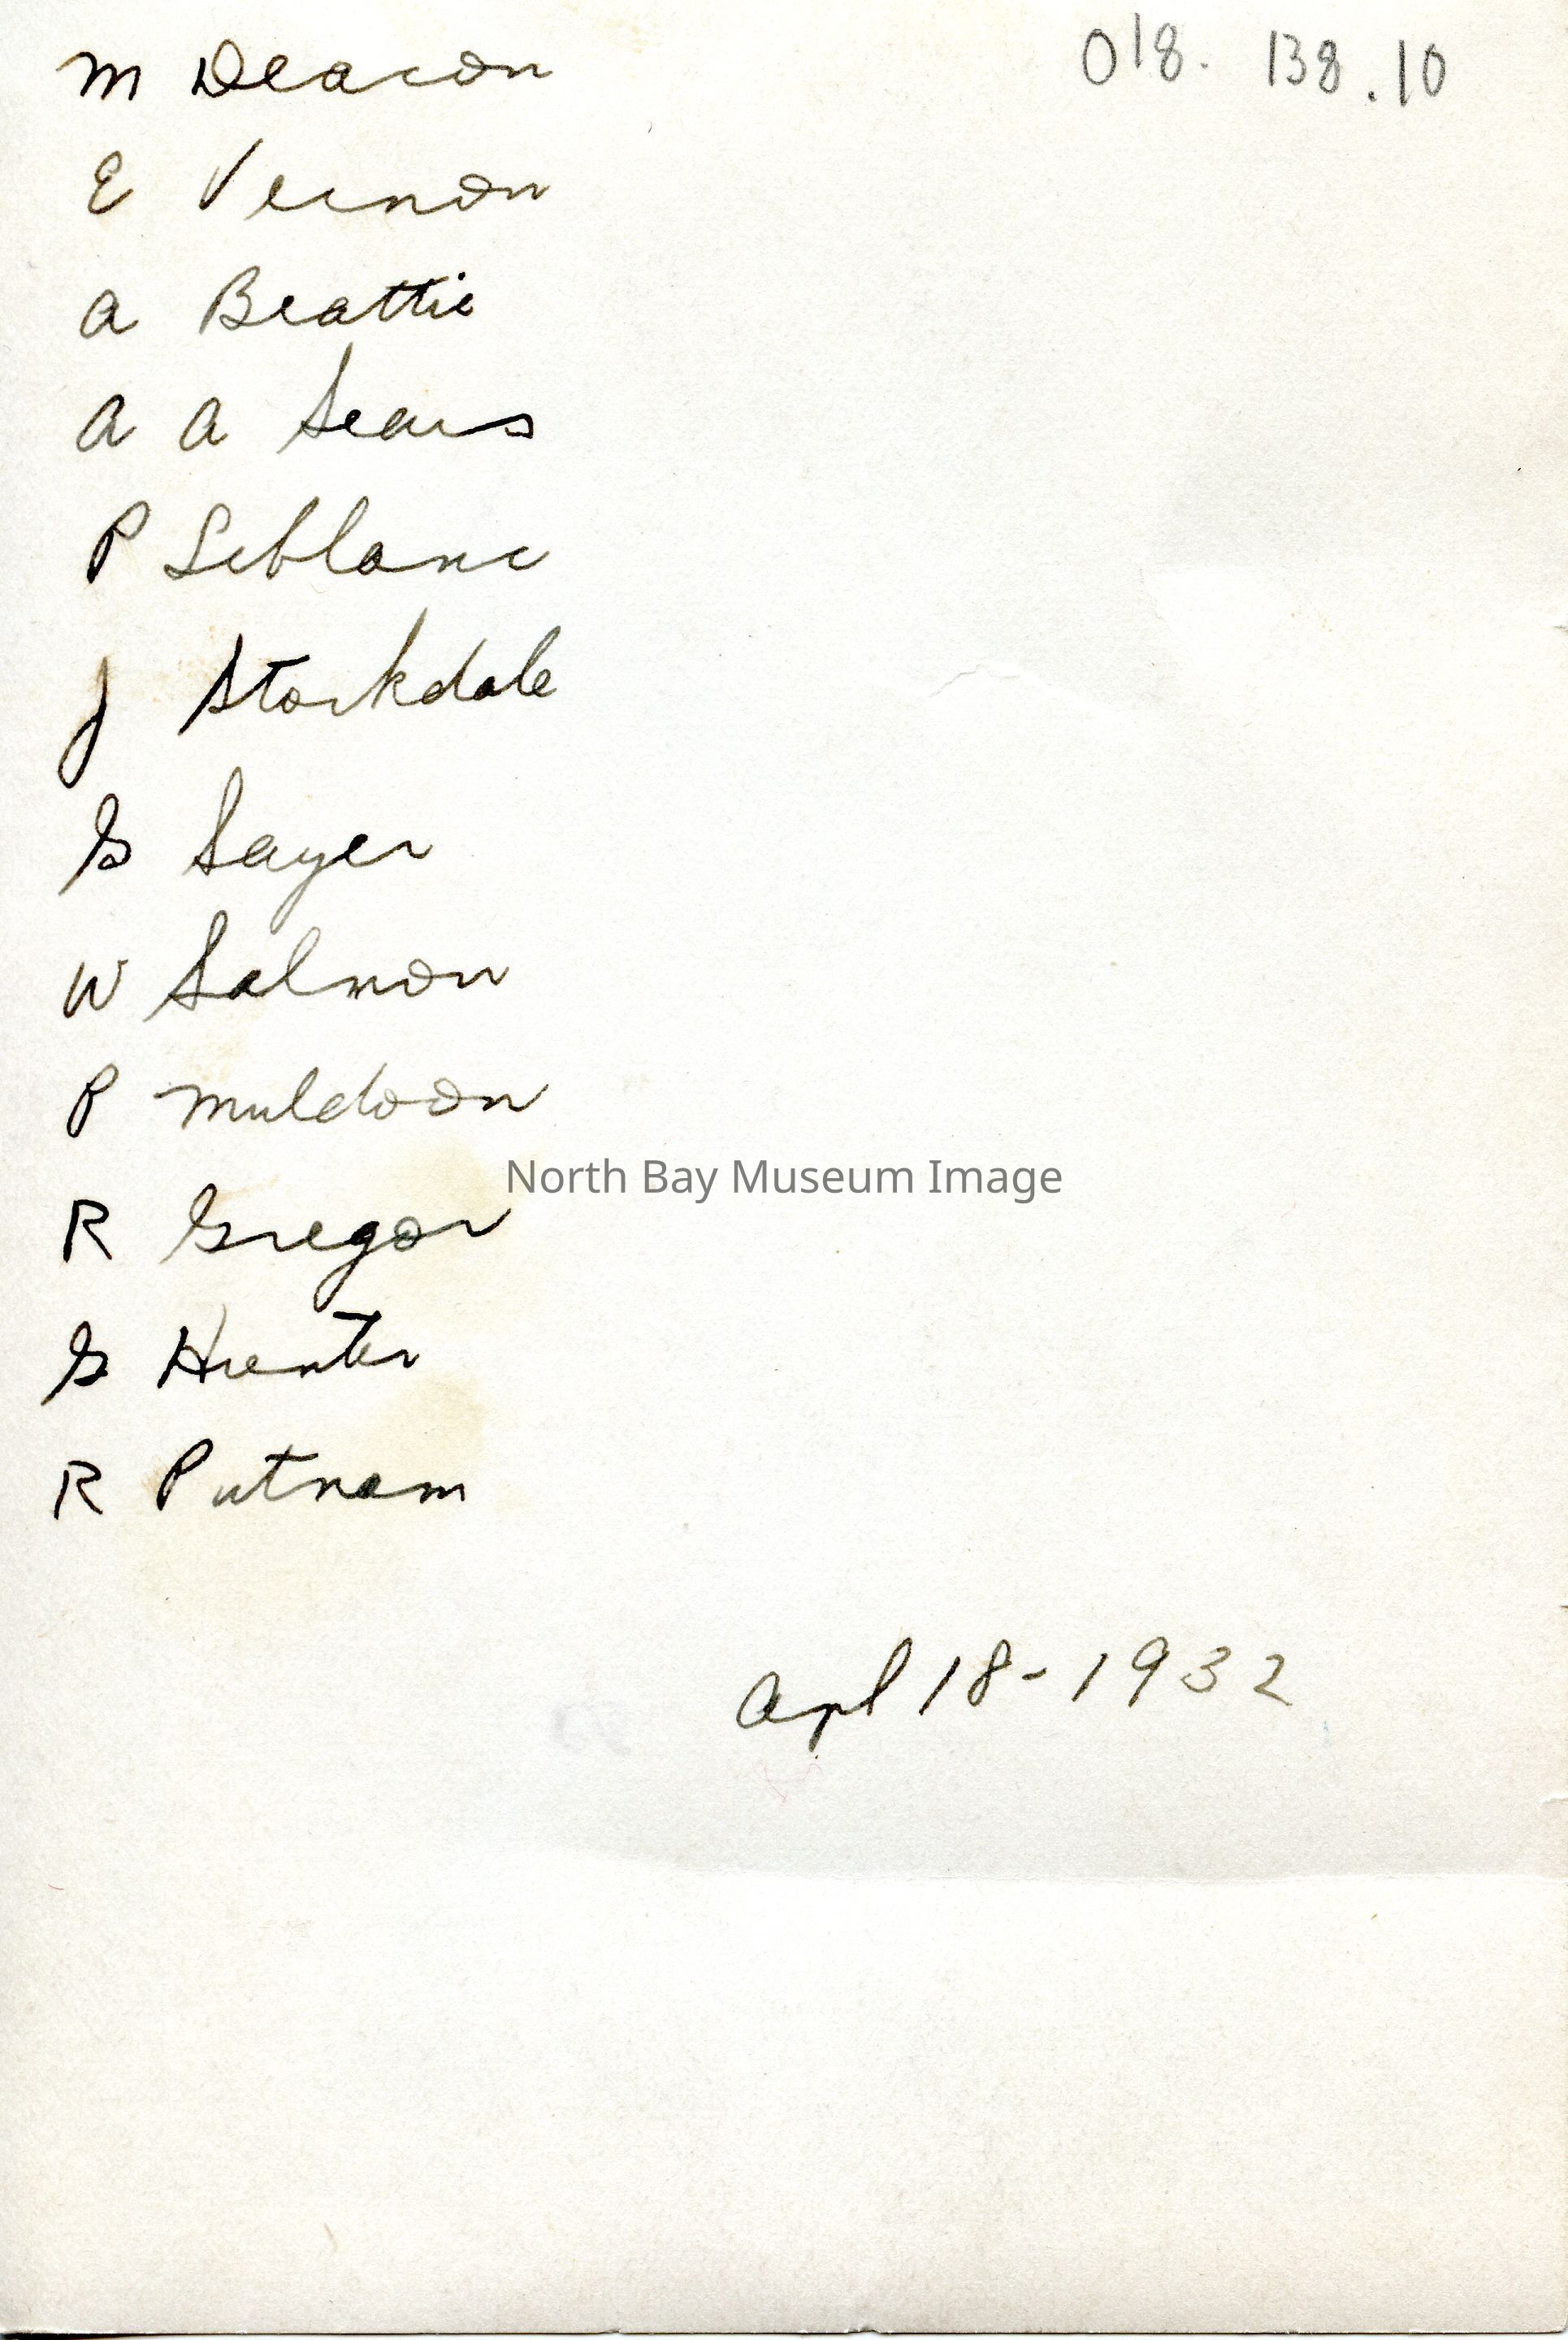 018. 138.10
M Deacon
E Vernon
A Beattie
A A Sears
P Leblanc
J Stockdale
G Sayer
W Salmon
P Muldoon
North Bay Museum Image
R Gregor
G Hunter
R Putnam
Apl 18-1932